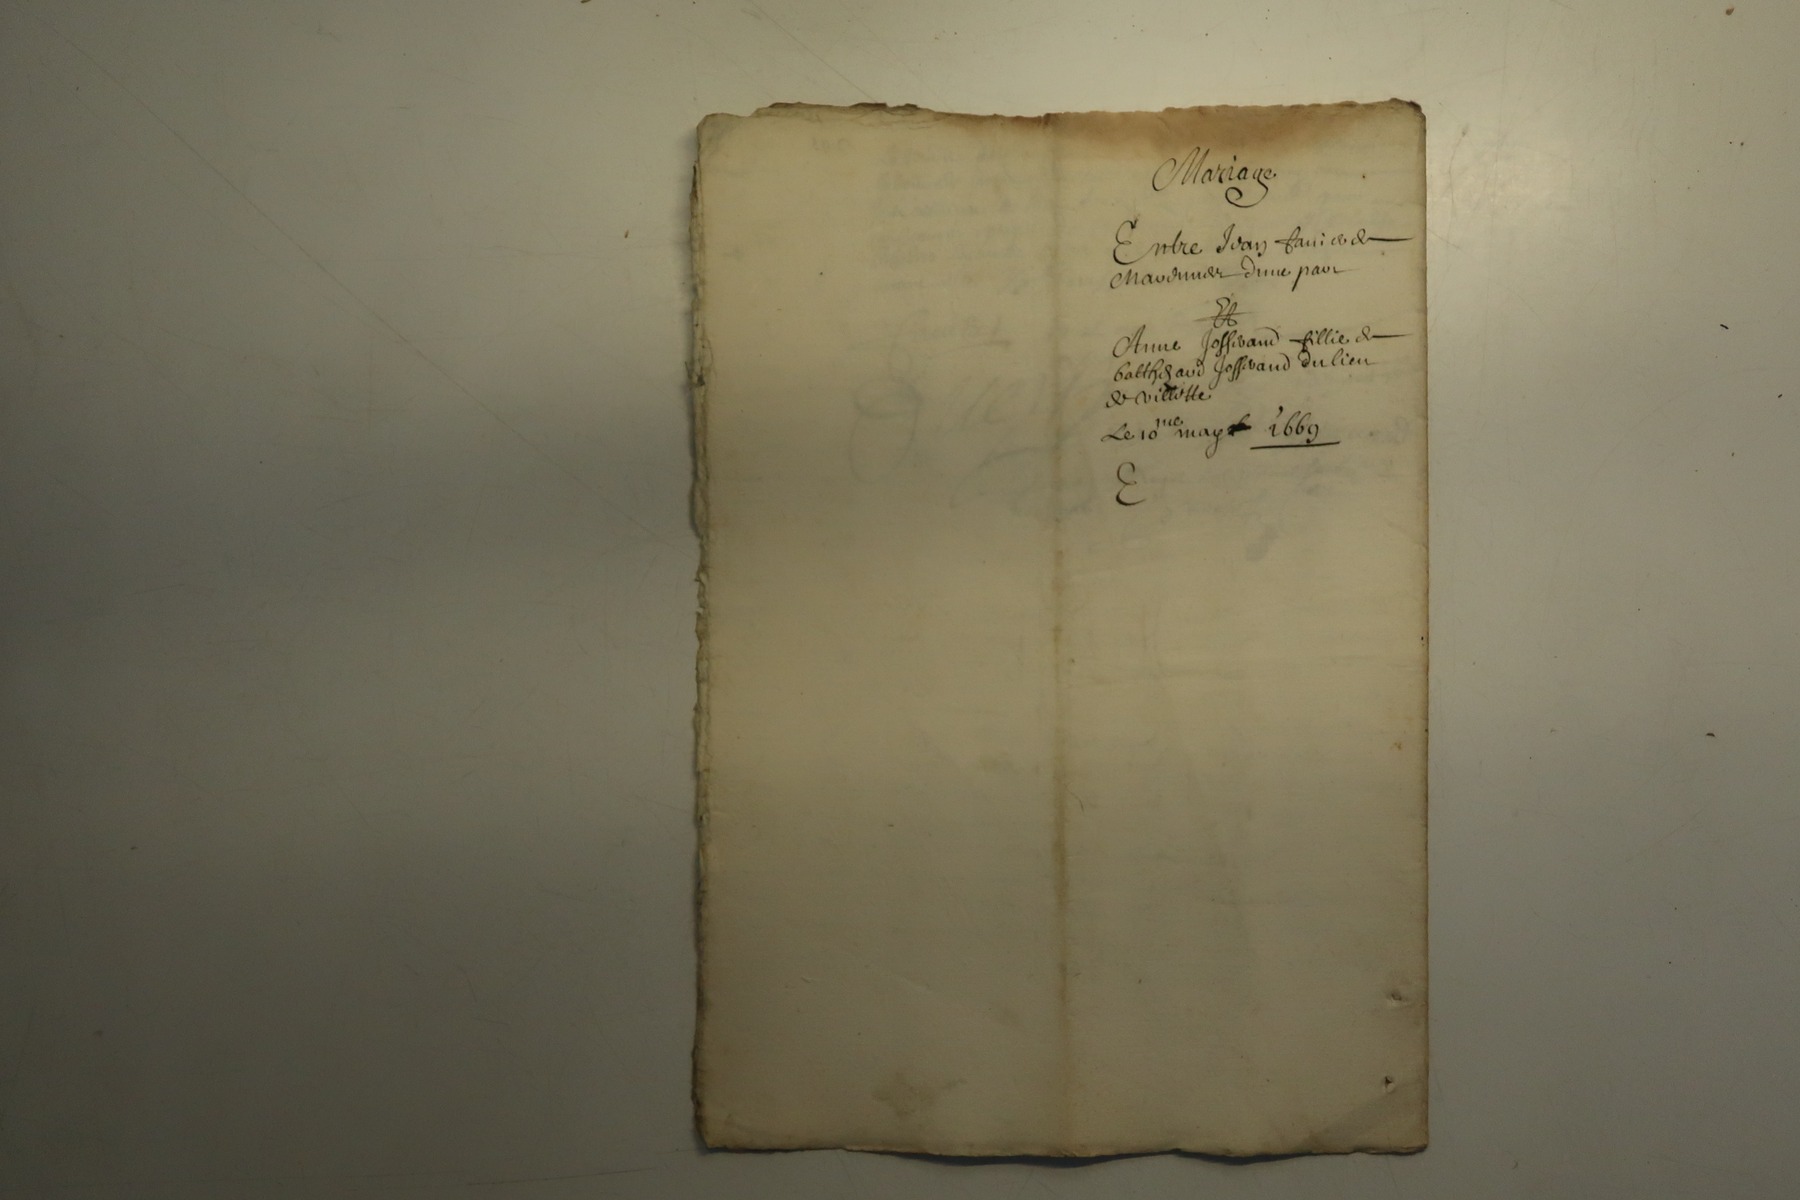 Mariage
Entre Jean de
dune part
Et
Anne Josserand fillie de
balthesard Josserand du lieu
de villette
Le 10me may 1669
E